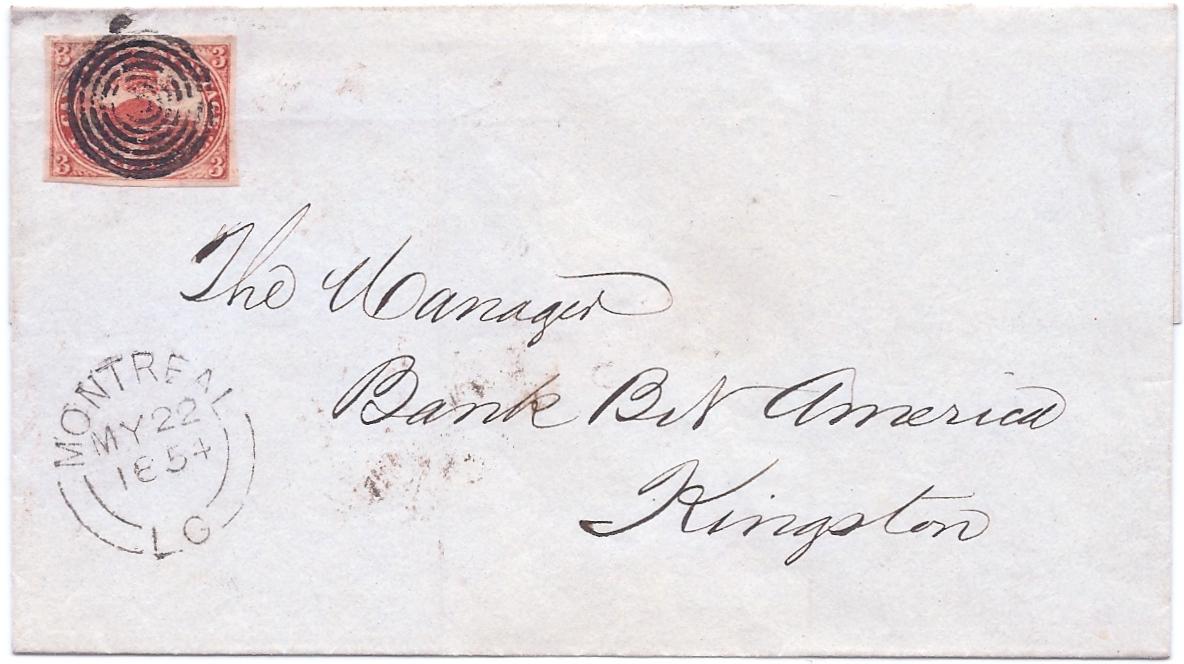 3 3
3 3
The Manager
Bank Brit America
Kingston
MONTREAL
MY 22
1854
LC